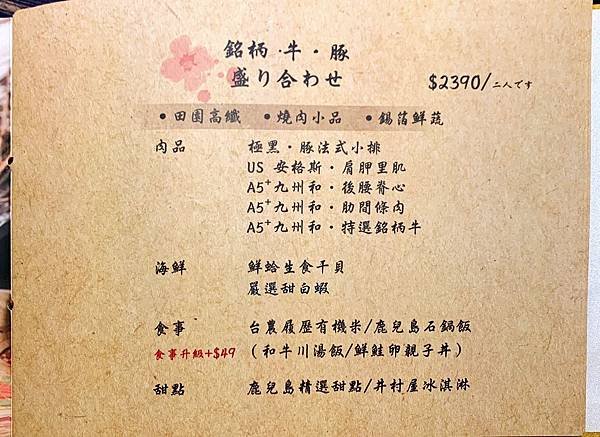 銘柄·牛·豚
盛り合わせ $2390/二人です
•田園高纖 •燒肉小品 •錫箔鮮蔬
肉品 極黑·豚法式小排
US 安格斯·肩胛里肌
A5⁺九州和·後腰脊心
A5⁺九州和·肋間條肉
A5⁺九州和·特選銘柄牛
海鮮 鮮蛤生食干貝
嚴選甜白蝦
食事 台農履歷有機米/鹿兒島石鍋飯
食事升級+$49 (和牛川湯飯/鮮鮭卵親子丼)
甜點 鹿兒島精選甜點/井村屋冰淇淋